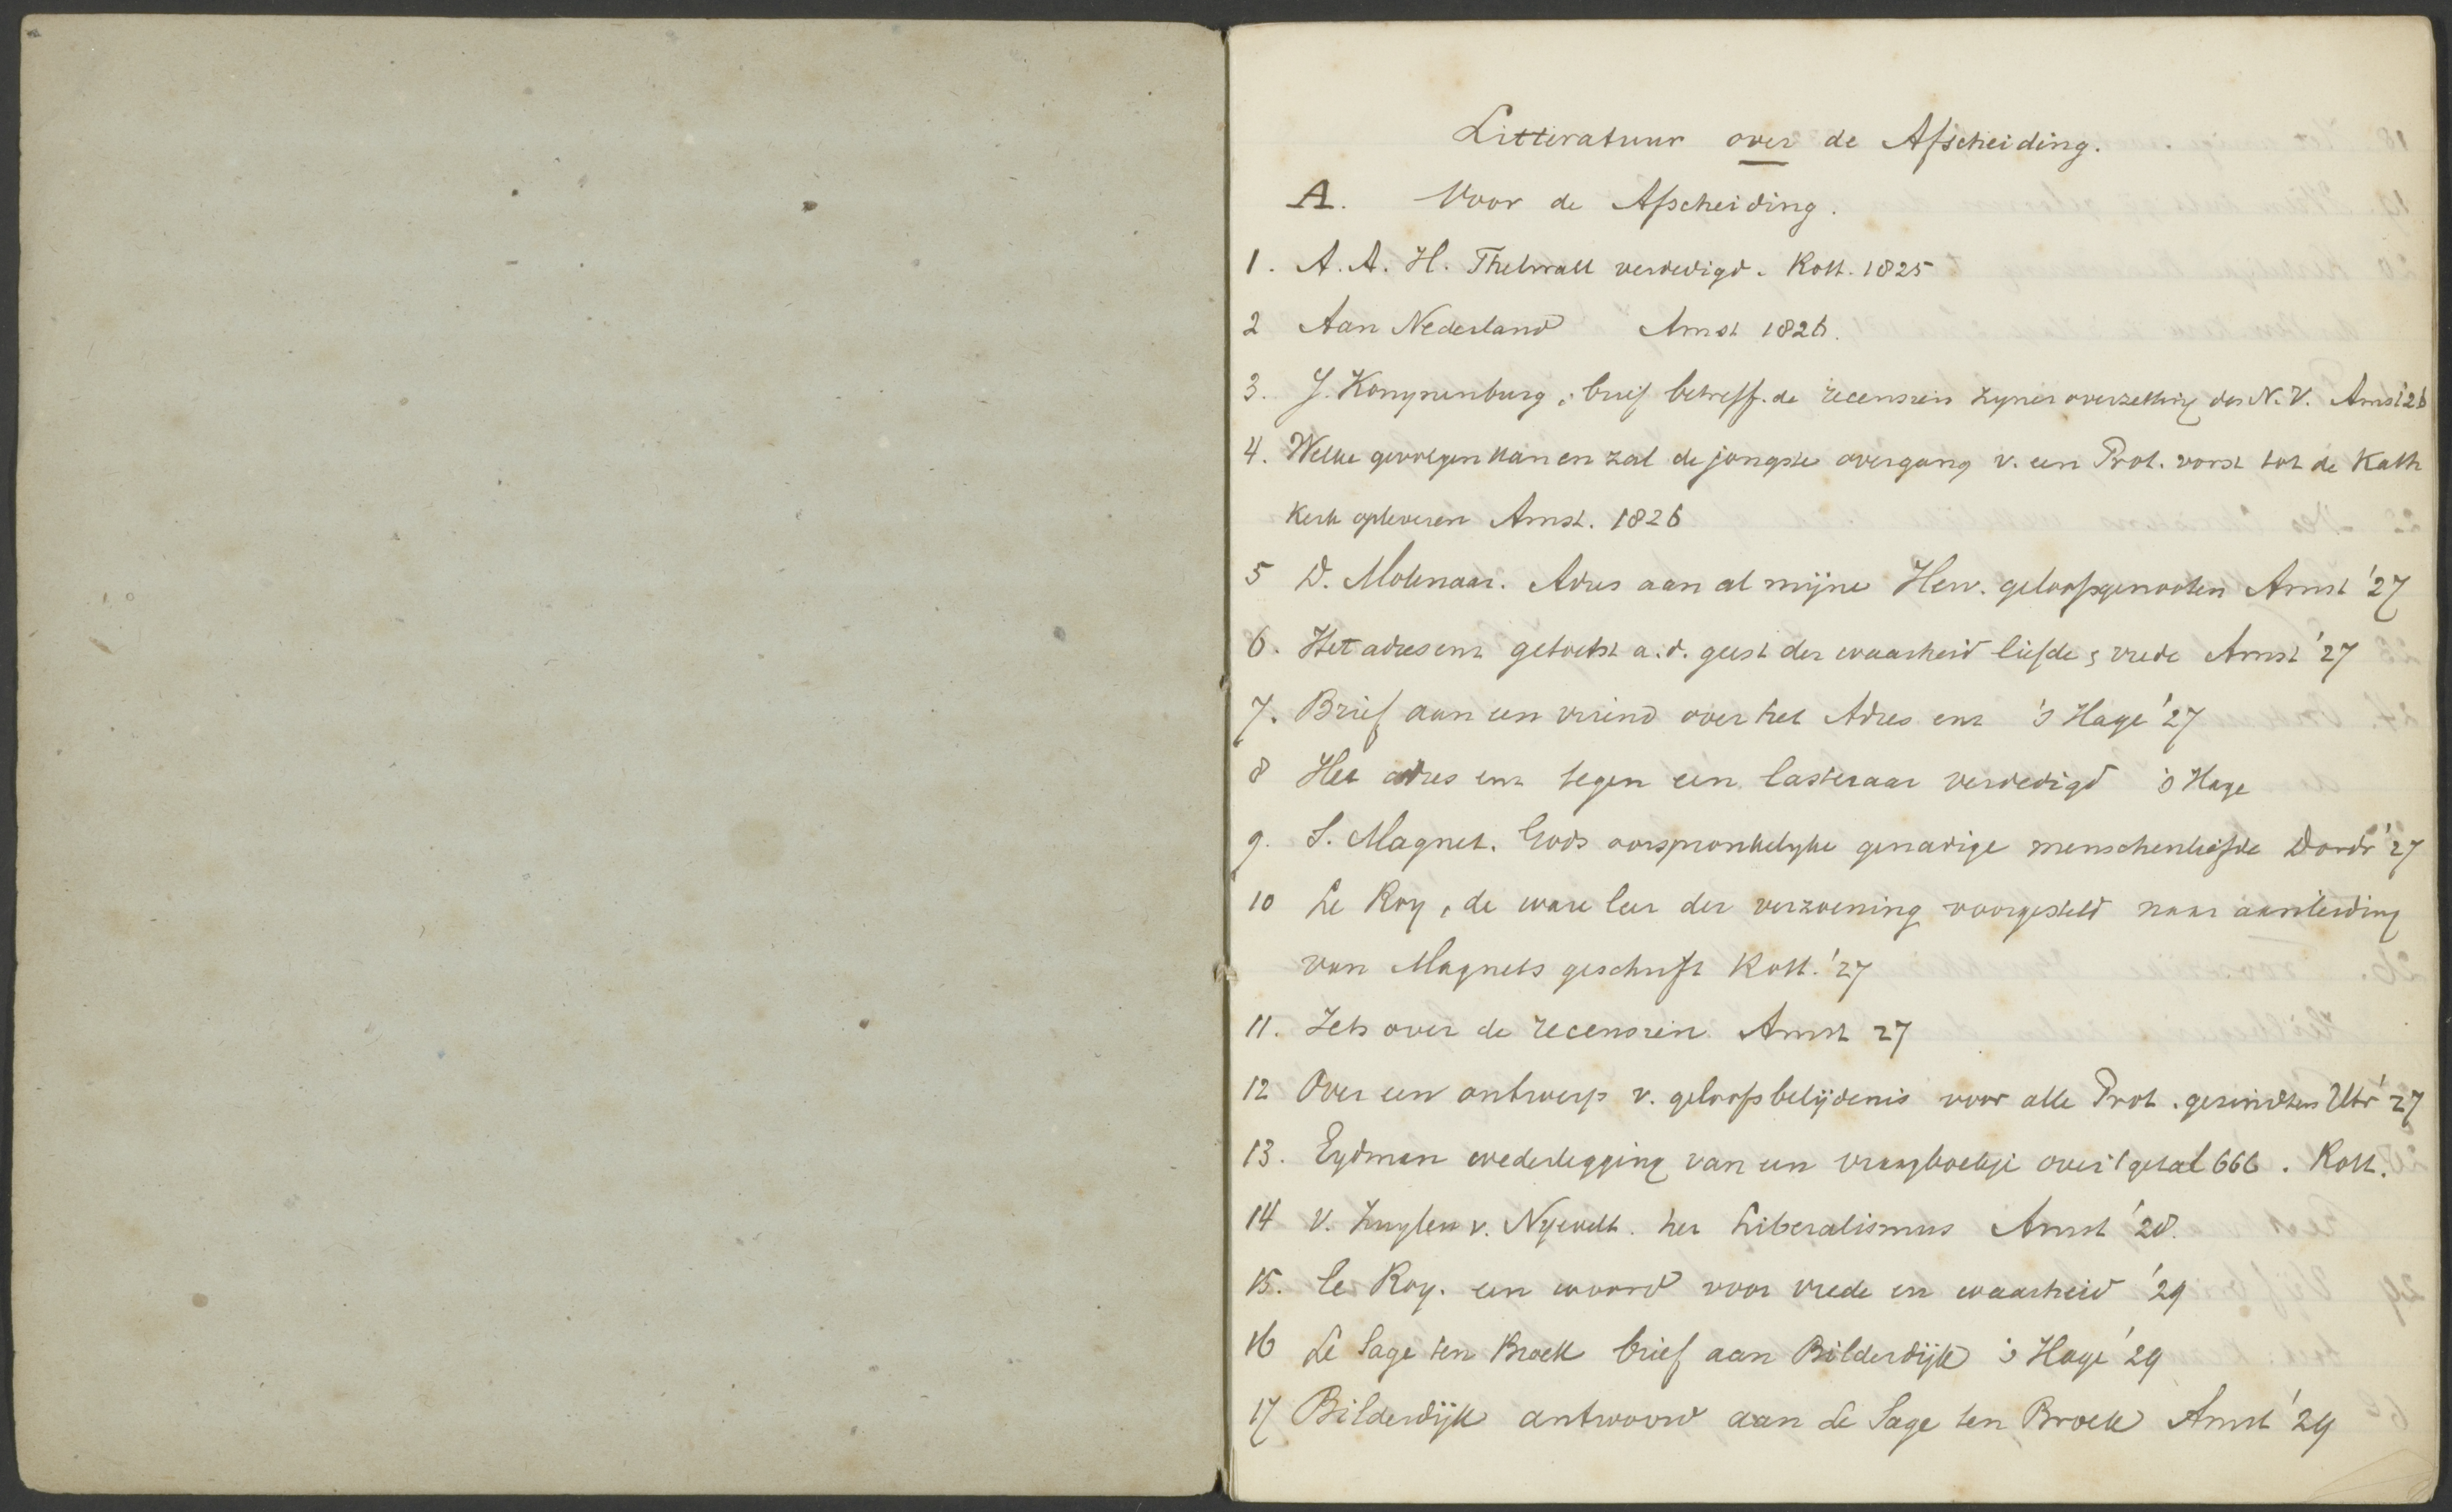 Litteratuur over de Afscheiding.
A. Voor de Afscheiding.
1. A.A. H. Thelwall verdedigd. Rott. 1825
2 Aan Nederland Amst 1826.
3. J. Konynenburg, brief betreff. de recensien zyner overzetting des N.V. Amst '26
4. Welke gevolgen kan en zal de jongste overgang v. een Prot. vorst tot de Kath
Kerk opleveren Amst. 1826
5 D. Molenaar. Adres aan al mijne Herv. geloofsgenooten Amst '27
6. Het adres enz getoetst a.d. geest der waarheid liefde & vrede Amst '27
7. Brief aan een vriend over het Adres enz 's Hage '27
8 Het adres enz tegen een lasteraar verdedigd 's Hage
9. S. Magnet. Gods oorspronkelyke genadige menschenliefde Dordr '27
10 Le Roy, de ware leer der verzoening voorgesteld naar aanleiding
van Magnets geschrift Rott. '27
11. Iets over de recensien Amst 27
12 Over een ontwerp v. geloofsbelijdenis voor alle Prot. gezindten Utr '27
13. Eydman wederlegging van een vraagboekje over 't getal 666. Rott.
14 V. Zuylen v. Nyevelt. het Liberalismus Amst '28.
15. le Roy. een woord voor vrede en waarheid '29
16 Le Sage ten Broek brief aan Bilderdijk 's Hage '29
17 Bilderdijk antwoord aan Le Sage ten Broek Amst '29